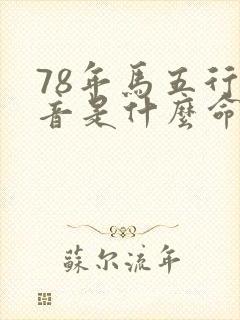 78年馬五行
音是什麼命
蘇尔流年